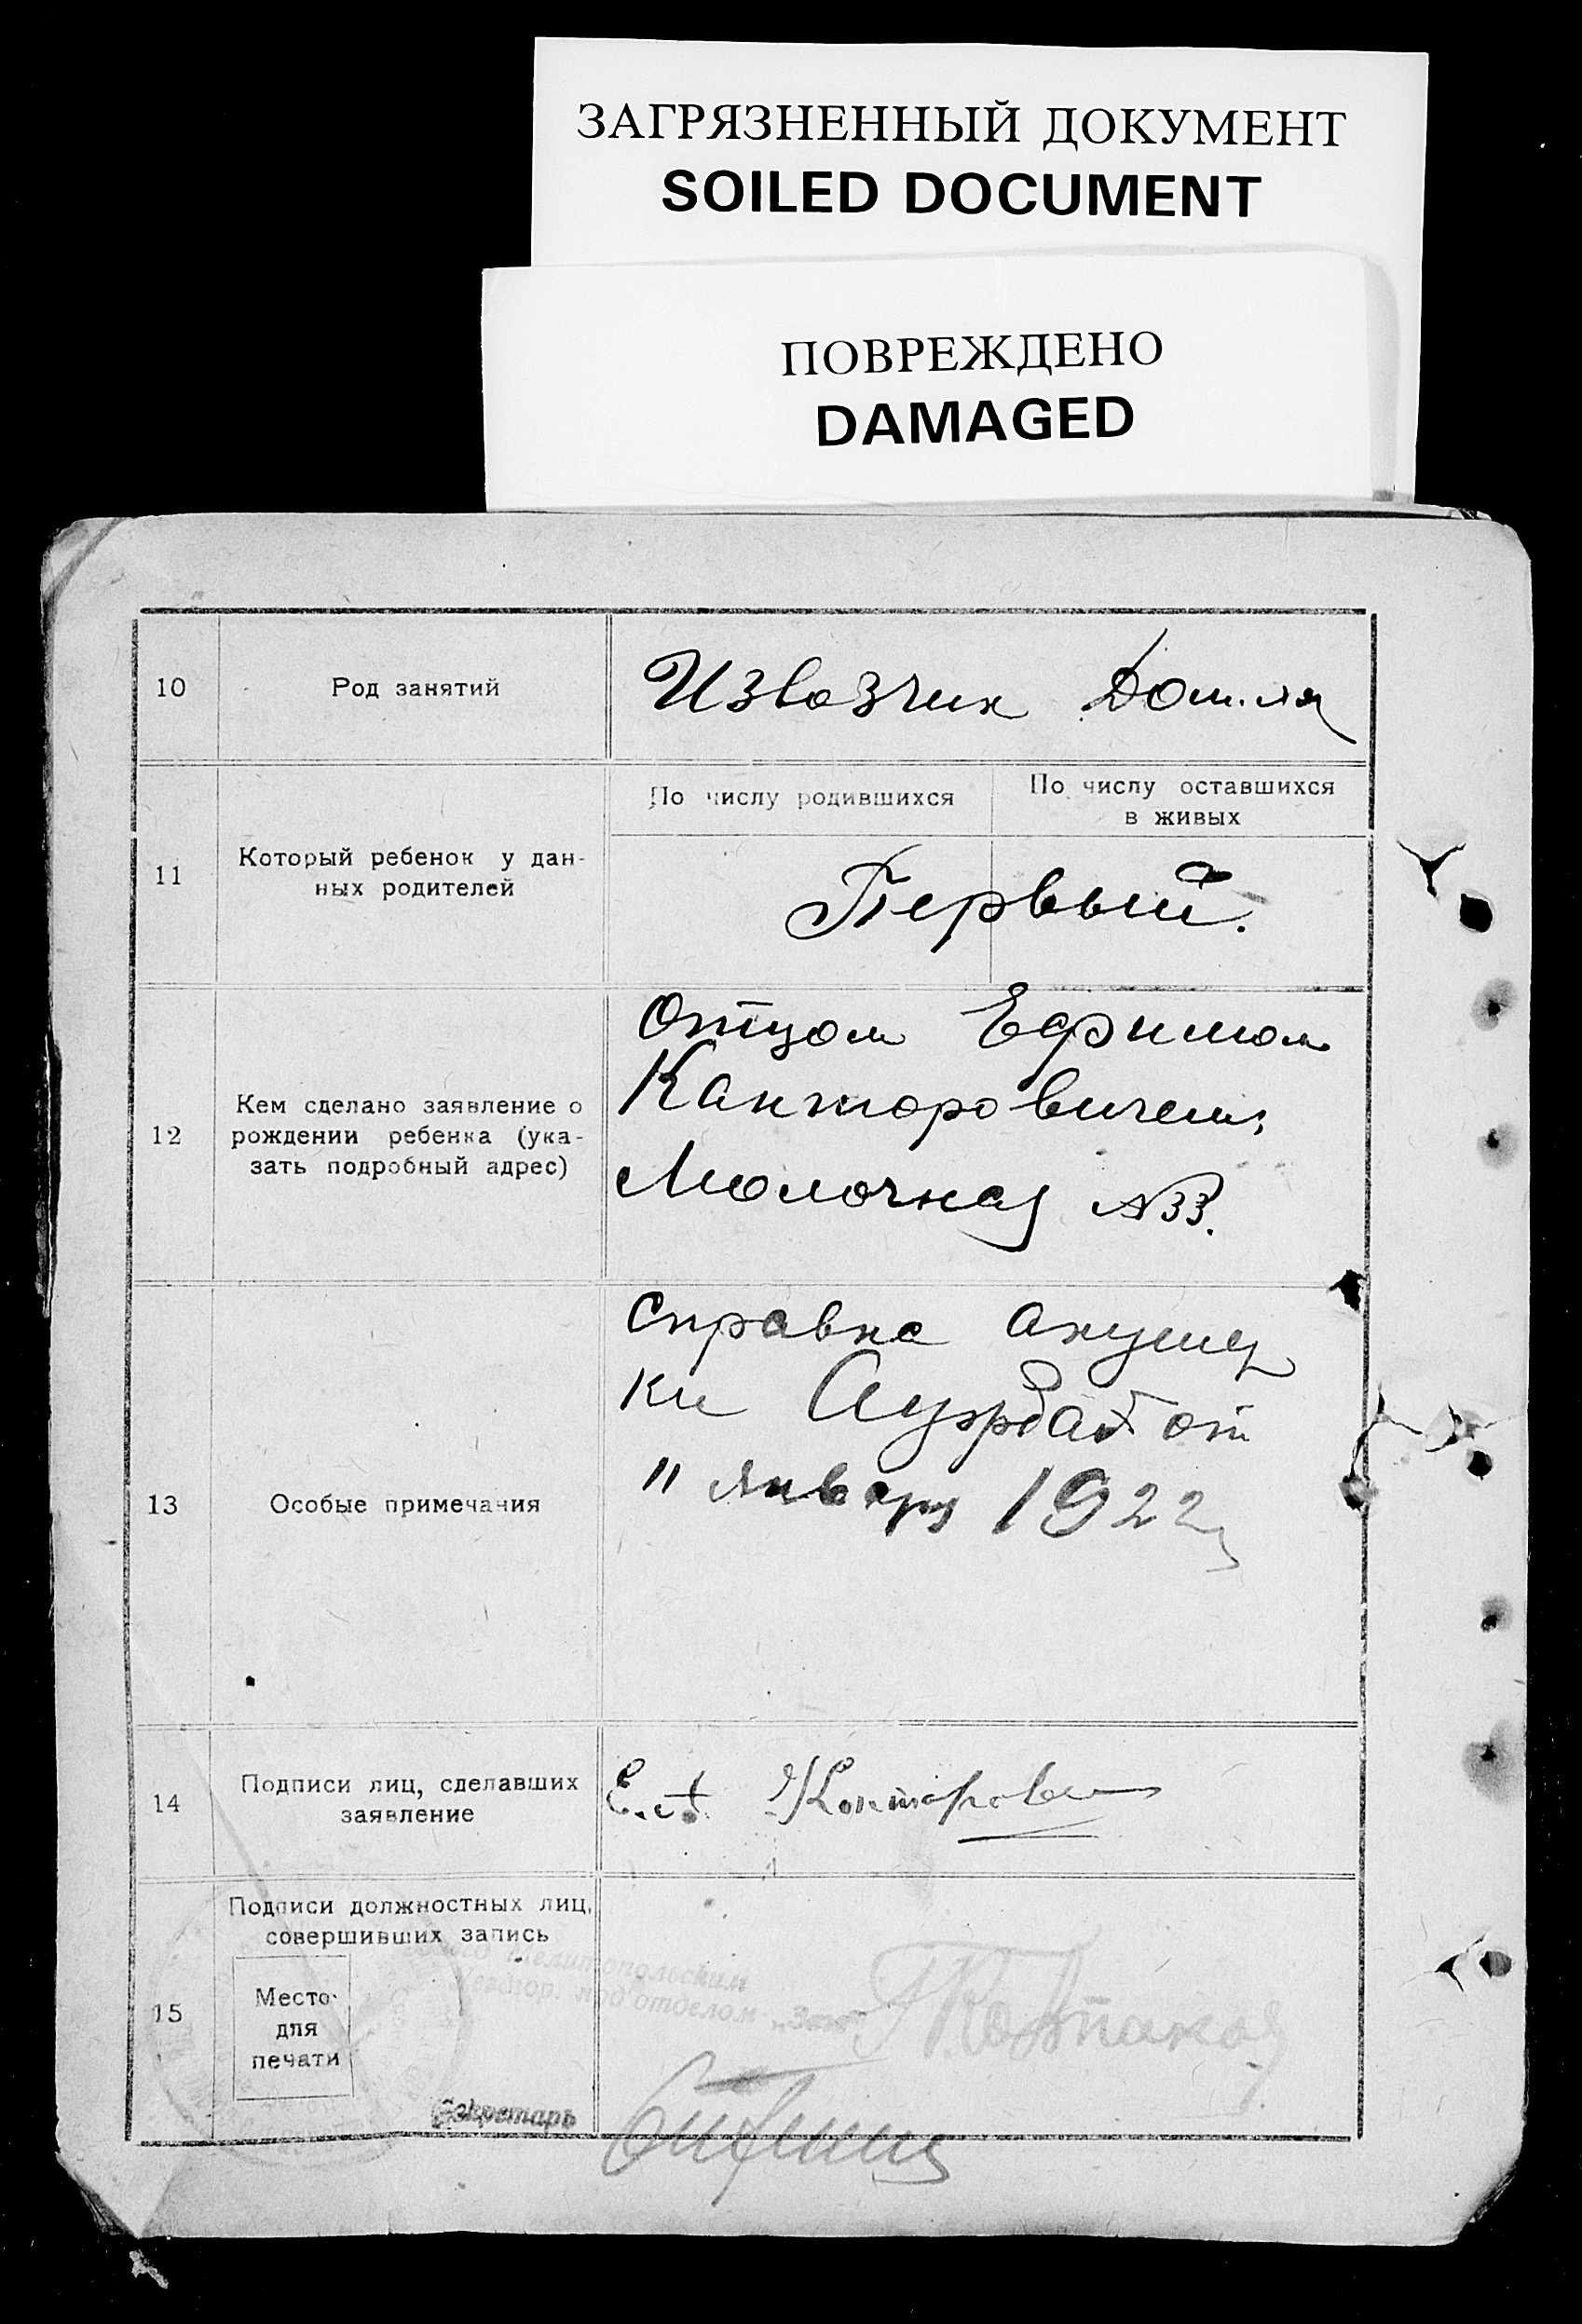 ЗАГРЯЗНЕННЫЙ ДОКУМЕНТ
SOILED DOCUMENT
ПОВРЕЖДЕНО
DAMAGED
10
Род занятий
Извозчик Дом.
По числу родившихся
По числу оставшихся
в живых
11
Который ребенок у дан-
ных родителей
Первый.
12
Кем сделано заявление о
рождении ребенка (ука-
зать подробный адрес)
Отцом Ефимом
Канторовичем;
Молочная №33.
13
Особые примечания
Справка акушер
ки Ауэрбах от
" января 1922
14
Подписи лиц, сделавших
заявление
15
Подписи должностных лиц,
совершивших запись
Мелитопольским
под'отделом
Место
для
печати
Секретарь